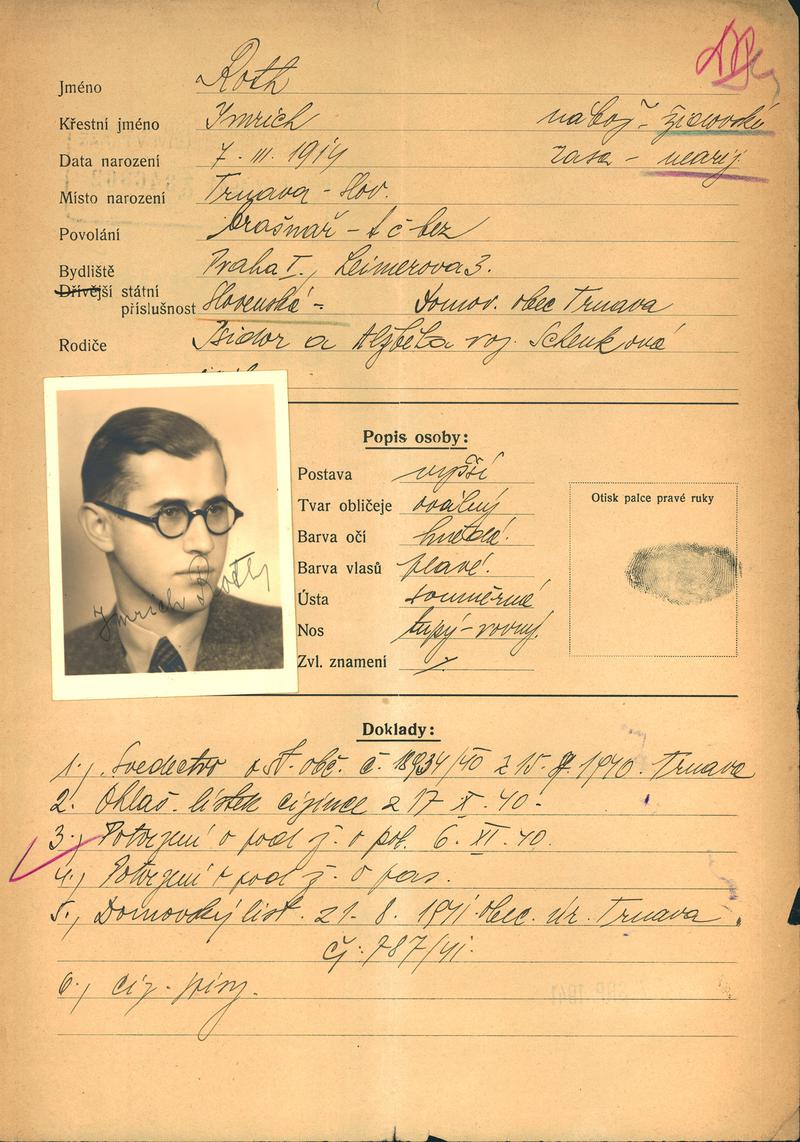 Jméno Roth
Křestní jméno Imrich nábož. - židovské
Data narození 7. III. 1914 rasa - nearij.
Místo narození Trnava - Slov.
Povolání brašnář - t č bez
Bydliště Praha I., Leimerova 3.
Dřívější státní
příslušnost Slovenská - Domov. obec Trnava
Rodiče Isidor a Alžběta roz. Schenková
Popis osoby:
Postava vyšší
Tvar obličeje oválný
Otisk palce pravé ruky
Barva očí hnědé.
Barva vlasů plavé.
Ústa souměrné
Nos tupý - rovný.
Zvl. znamení
Imrich Roth
Doklady:
1.) Svedectvo o st. obč. č. 18934/40 z 15. 1940. Trnava
2. Ohlaš. lístek cizince z 17 X. 40 -
3.) Potvrzení o pod ž. o pob. 6. XI. 40.
4.) Potvrzení o pod ž. o pas.
5.) Domovský list. 21. 8. 1941 obec. úr. Trnava.
čj. 787/41.
6.)